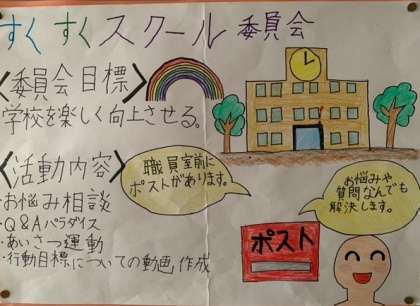 すくすくスクール委員会
〈委員会目標〉
学校を楽しく向上させる。
〈活動内容〉
・お悩み相談
・Q&Aパラダイス
・あいさつ運動
・行動目標についての動画作成
職員室前に
ポストがあります。
お悩みや
質問なんでも
解決します。
ポスト